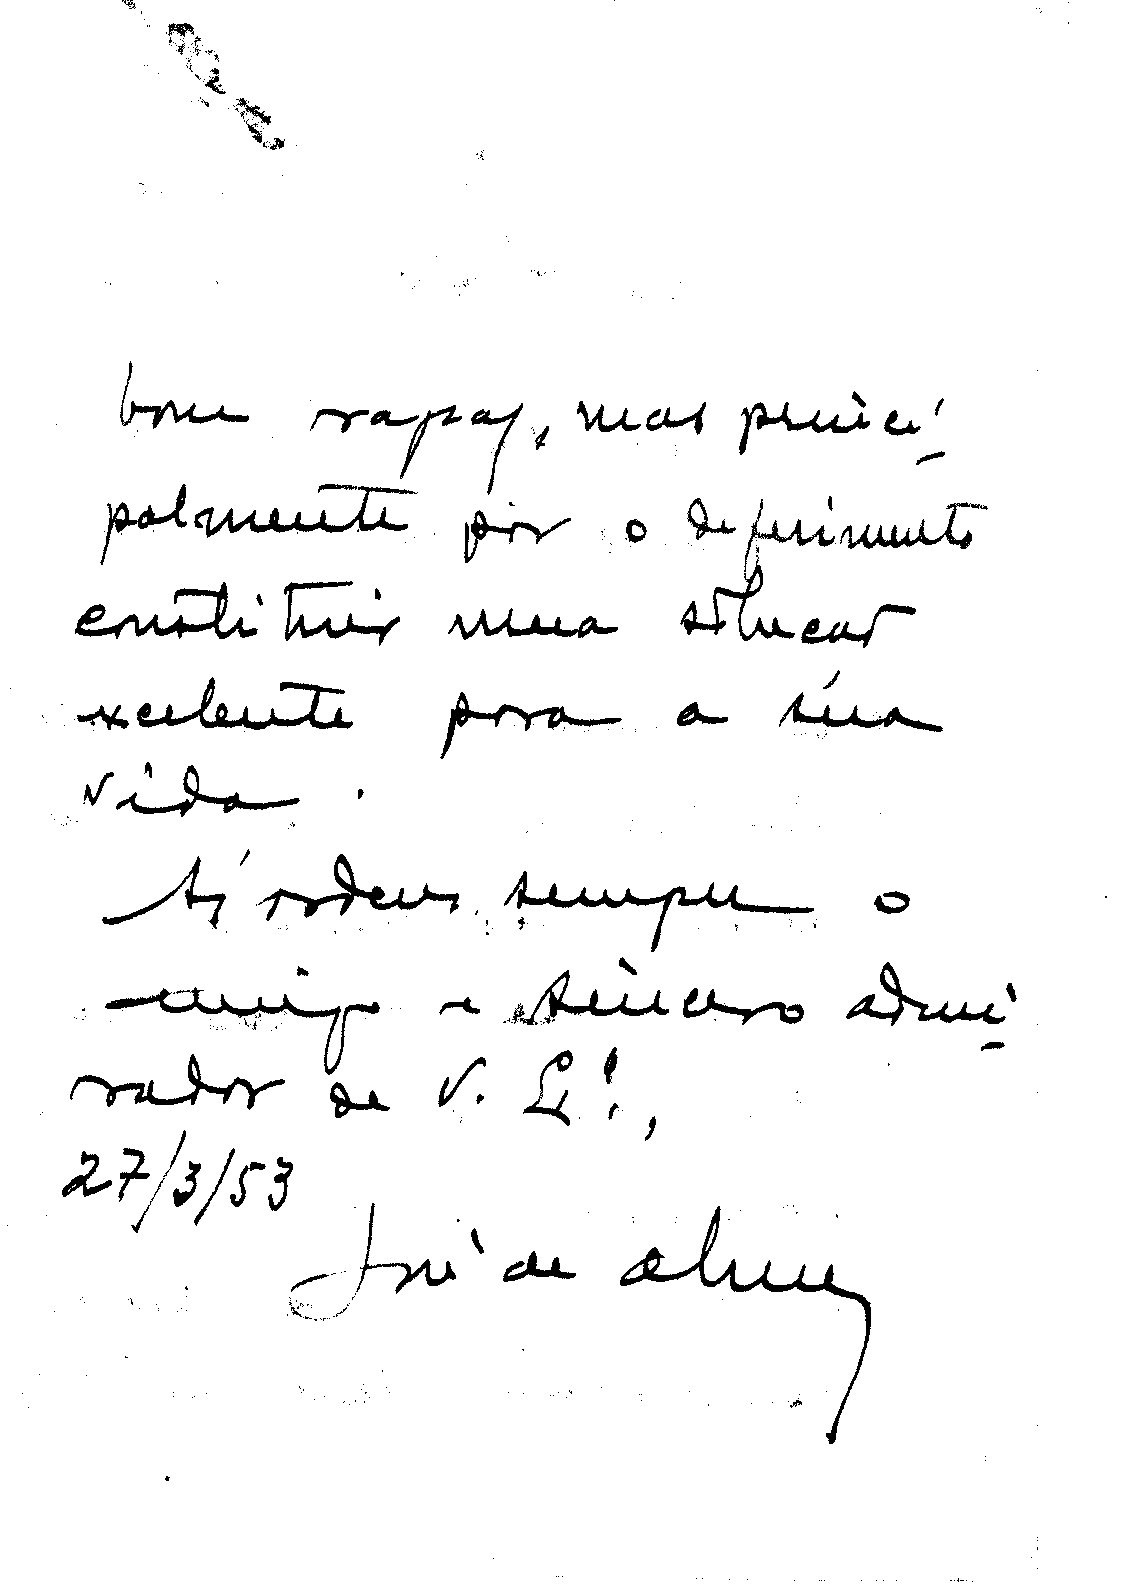 bom rapaz, mas princi-
palmente por o deferimento
constituir uma solucao
excelente para a sua
vida.
Às ordens sempre o
amigo e sincero admi-
rador de V. Exª.,
27/3/53
José de